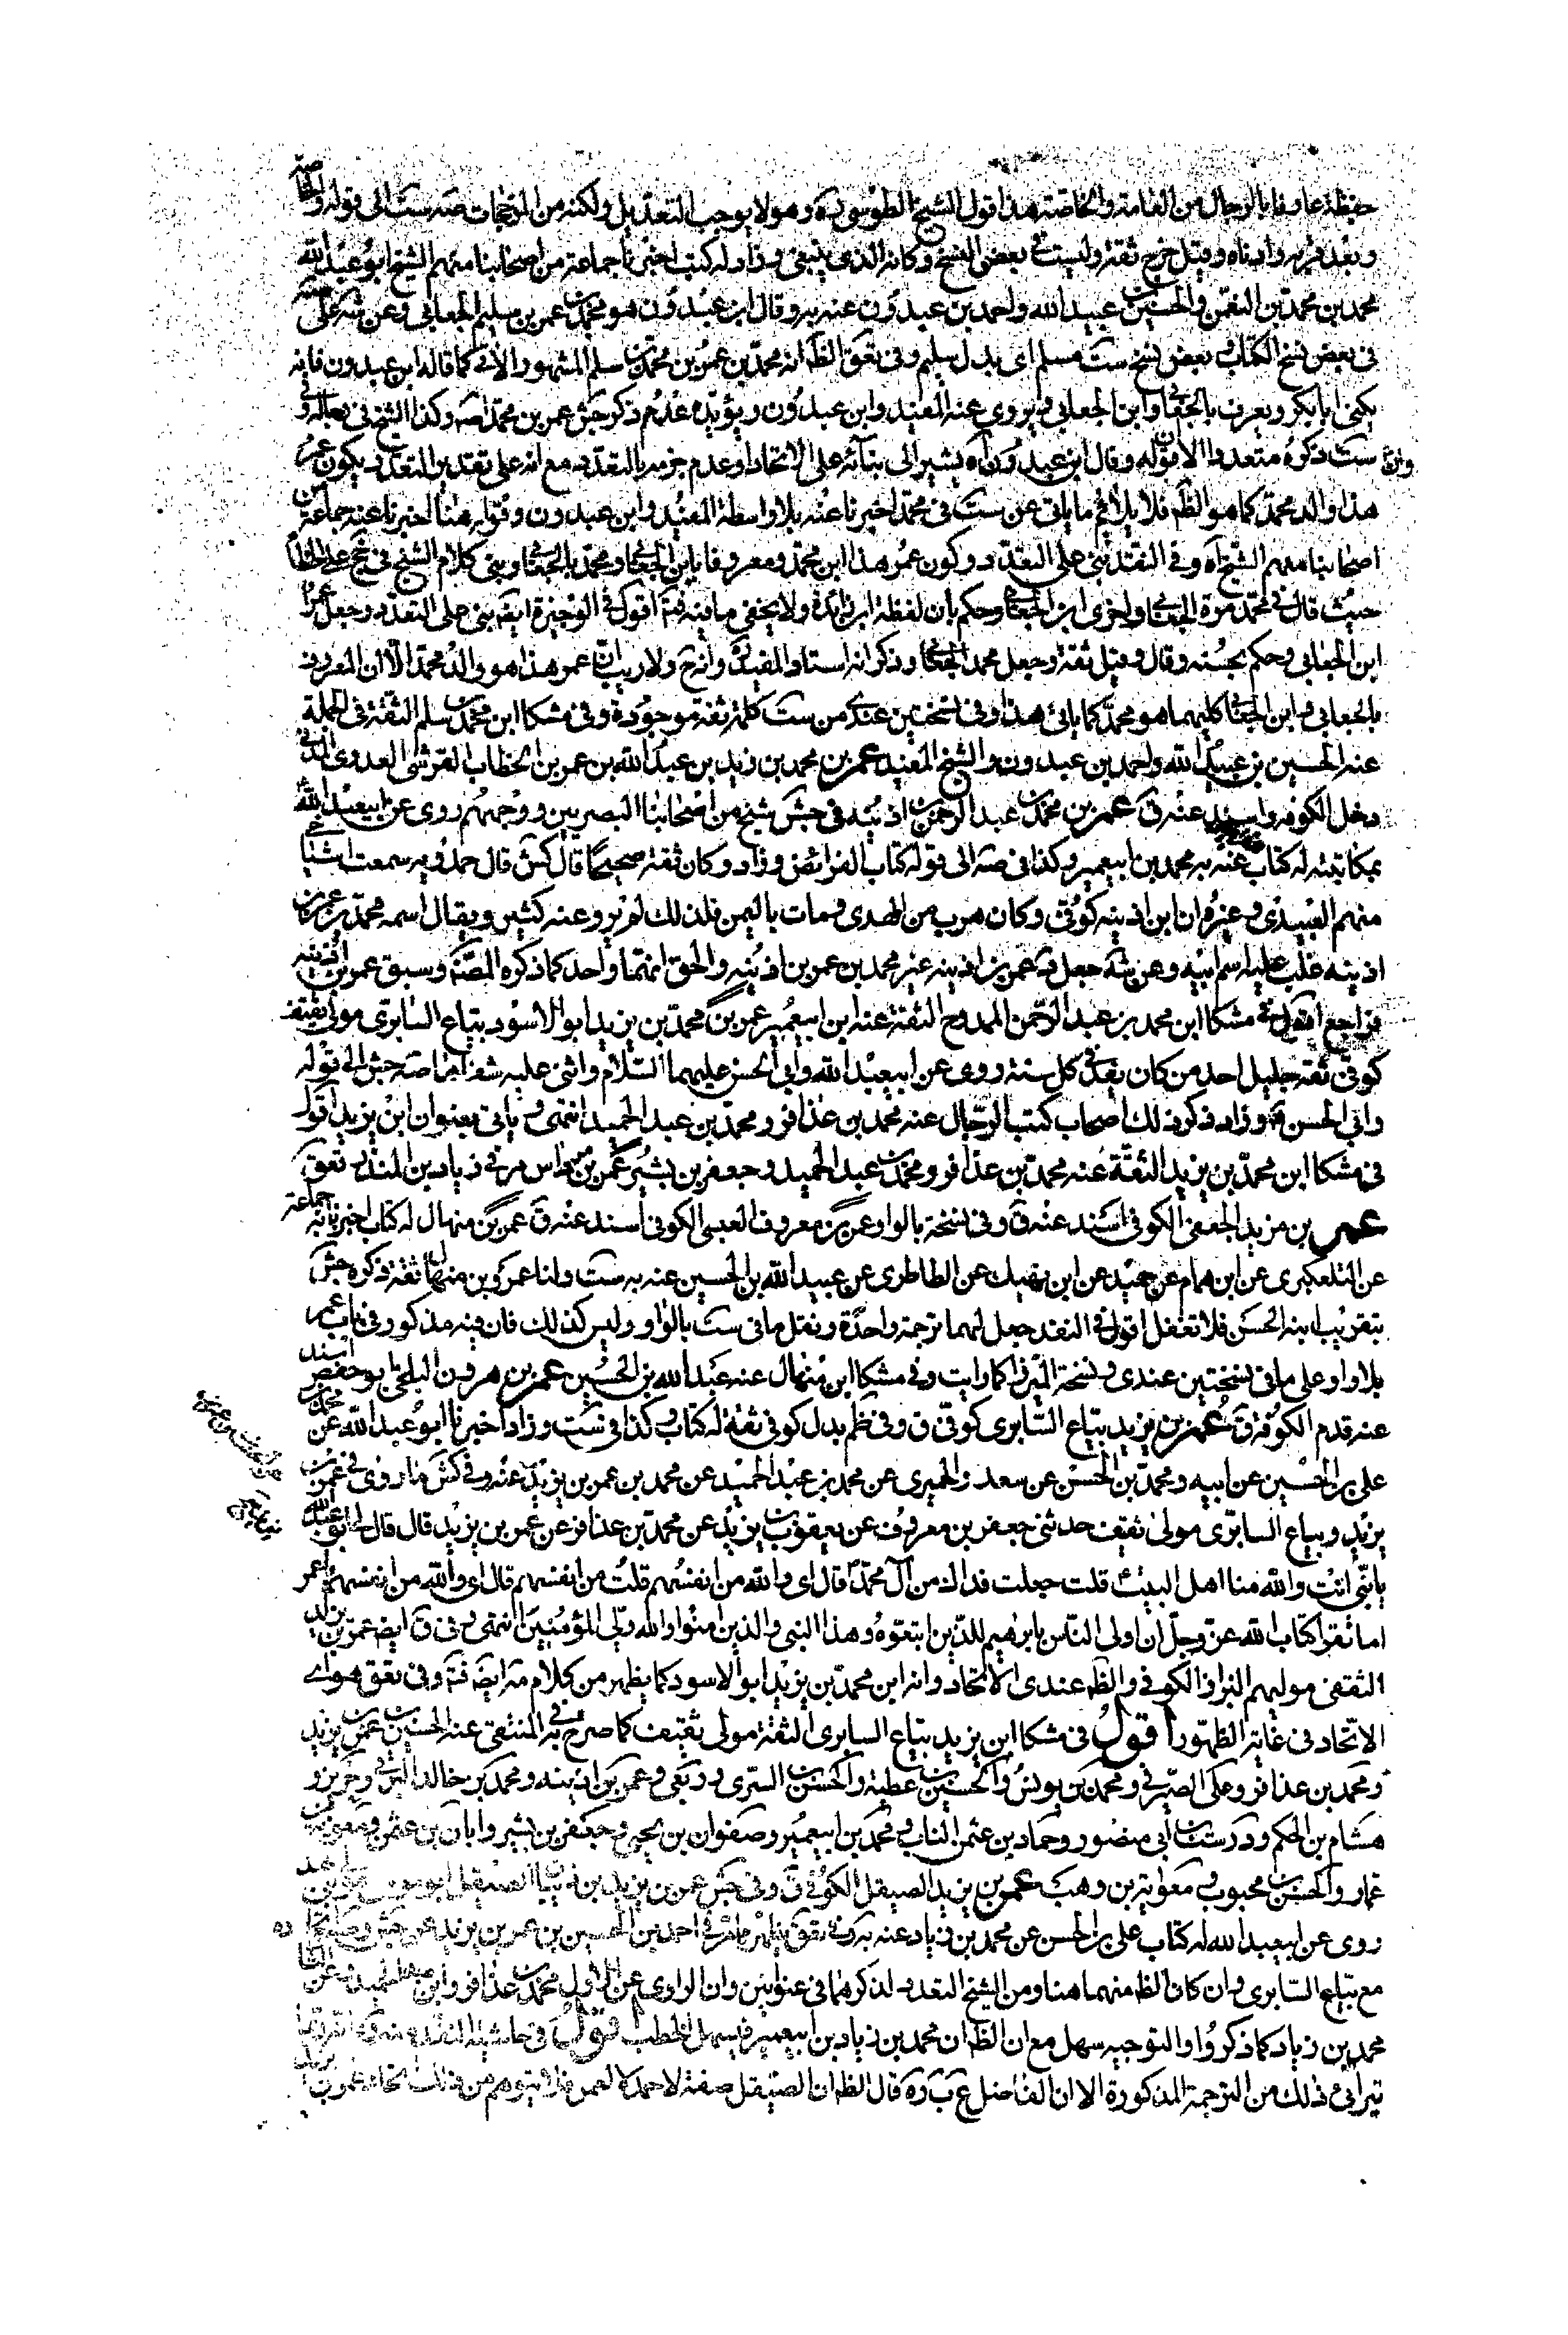 حفظة عارفا بالرجال من العامة والخاصة هذا قول الشيخ الطوسي ره وهو لا يوجب التعديل ولكنه من المرجحات صه ست الى قوله والخاصة
وبعد فربه وادناه وقيل خرج ثقة وليست في بعض النسخ وكانه الذي ينبغي وزاد له كتب اخبرنا جماعة من اصحابنا منهم الشيخ ابو عبد الله
محمد بن محمد بن النعمن والحسين بن عبيد الله واحمد بن عبدون عنه به وقال ابن عبدون هو محمد بن عمر بن سليم الجعابي وعن شه على صه
في بعض نسخ الكتاب بعض نسخ ست مسلم اي بدل سليم وفي تعق الظ انه محمد بن عمر بن محمد بن سلم المشهور الاتي كما قاله ابن عبدون فانه
يكنى ابا بكر ويعرف بالجعابي وابن الجعابي ويروي عنه المفيد وابن عبدون ويؤيده عدم ذكر جش عمر بن محمد اصه وكذا الشيخ في رجاله وفي
ست ذكره متعددا الا ان قوله وقال ابن عبدون اه يشير الى بنائه على الاتحاد او عدم جزمه بالتعدد مع انه على تقدير التعدد يكون عمر
هذا والد محمد كما هو الظ فلا يلائم ما ياتي عن ست في محمد اخبرنا عنه بلا واسطة المفيد وابن عبدون وقوله هنا اخبرنا عنه جماعة من
اصحابنا منهم الشيخ اه وفي النقد بنى على التعدد وكون عمر هذا ابن محمد ومعروفا بابن الجعابي ومحمد بالجعابي وبنى كلام الشيخ في لم على الخطأ
حيث قال في محمد مرة الجعابي واخرى ابن الجعابي وحكم بان لفظة ابن زائدة ولا يخفى ما فيه فتم اقول في الوجيزة ايضه بنى على التعدد وجعل عمر
ابن الجعابي وحكم بحسنه وقال وقيل ثقة وجعل محمد الجعابي وذكر انه استاد المفيد وانه ح ولا ريب ان عمر هذا هو والد محمد الا ان المعروف
بالجعابي وابن الجعابي كليهما هو محمد كما ياتي هذا وفي نسختين عندي من ست كلمة ثقة موجودة وفي مشكا ابن محمد بن سلم الثقة في الجملة
عنه الحسين بن عبيد الله واحمد بن عبدون والشيخ المفيد عمر بن محمد بن زيد بن عبد الله بن عمر بن الخطاب القرشي العدوي المدني
دخل الكوفه واسند عنه ق عمر بن محمد بن عبد الرحمن بن اذينه في جش شيخ من اصحابنا البصريين ووجههم روى عن ابيعبد الله ع
بمكاتبته له كتاب عنه به محمد بن ابيعمير وكذا في صه الى قوله كتاب الفرائض وزاد وكان ثقة صحيحا قال كش قال حمدويه سمعت اشياخي
منهم العبيدي وغيره ان ابن اذينه كوفي وكان هرب من المهدي ومات باليمن فلذلك لم يرو عنه كثير ويقال اسمه محمد بن عمر بن
اذينه غلب عليه اسم ابيه وعن شه جعل د عمر بن اذينه غير محمد بن عمر بن اذينه والحق انهما واحد كما ذكره المصنف وسبق عمر بن اذينه
فراجع اقول في مشكا ابن محمد بن عبد الرحمن الممدوح الثقة عنه ابن ابيعمير عمر بن محمد بن يزيد ابو الاسود بياع السابري مولى ثقيف
كوفي ثقة جليل احد من كان يفد في كل سنة روى عن ابيعبد الله وابي الحسن عليهما السلام واثنى عليه شفاها صه جش الى قوله
وابي الحسن ع وزاد ذكر ذلك اصحاب كتب الرجال عنه محمد بن عذافر ومحمد بن عبد الحميد انتهى وياتي بعنوان ابن يزيد اقول
في مشكا ابن محمد بن يزيد الثقة عنه محمد بن عذافر ومحمد بن عبد الحميد وجعفر بن بشير عمر بن مرداس مر في زياد بن المنذر تعق
عمر بن مزيد الجعفي الكوفي اسند عنه ق وفي نسخة بالواو عمر بن معروف العبسي الكوفي اسند عنه ق عمر بن منهال له كتاب اخبرنا به جماعة
عن التلعكبري عن ابن همام عن حميد عن ابن نهيك عن الطاطري عن عبيد الله بن الحسين عنه به ست واما عمرو بن منهال ثقة ذكره جش
بتقريب ابنه الحسن فلا تغفل اقول في النقد جعل لهما ترجمة واحدة ونقل ما في ست بالواو وليس كذلك فان فيه مذكور في باب عمر
بلا واو على ما في نسختين عندي ونسخة الميرزا كما رايت وفي مشكا ابن منهال عنه عبد الله بن الحسين عمر بن هرون البلخي ابو حفص اسند
عنه قدم الكوفة ق عمر بن يزيد بياع السابري كوفي ق وفي ظم بدل كوفي ثقة له كتاب وكذا في ست وزاد اخبرنا ابو عبد الله عن محمد بن
علي بن الحسين عن ابيه ومحمد بن الحسن عن سعد والحميري عن محمد بن عبد الحميد عن محمد بن عمر بن يزيد عنه وفي كش ما روي في عمر بن
يزيد وبياع السابري مولى ثقيف حدثني جعفر بن معروف عن يعقوب بن يزيد عن محمد بن عذافر عن عمر بن يزيد قال قال لي ابو عبد الله
يا بني انت والله منا اهل البيت قلت جعلت فداك من آل محمد ص قال اي والله من انفسهم قلت من انفسهم قال اي والله من انفسهم يا عمر
اما تقرا كتاب الله عز وجل ان اولى الناس بابرهيم للذين اتبعوه وهذا النبي والذين امنوا والله ولي المؤمنين انتهى وفي ق ايضه عمر بن يزيد
الثقفي موليهم البزاز الكوفي والظ عندي الاتحاد وانه ابن محمد بن يزيد ابو الاسود كما يظهر من كلام مه ايضه فتم وفي تعق هو اي
الاتحاد في غاية الظهور اقول في مشكا ابن يزيد بياع السابري الثقة مولى ثقيف كما صرح به في المنتقى عنه الحسين بن عمر بن يزيد
ومحمد بن عذافر وعلى الصيرفي ومحمد بن يونس والحسين بن عطية والحسن بن السري وربعي وعمر بن اذينه ومحمد بن خالد البرقي وحريز و
هشام بن الحكم ودرست بن ابي منصور وحماد بن عثمن الناب ومحمد بن ابيعمير وصفوان بن يحيى وجعفر بن بشير وابان بن عثمن ومعوية بن
عمار والحسن بن محبوب ومعوية بن وهب عمر بن يزيد الصيقل الكوفي ق وفي جش عمر بن يزيد بن ذبيان الصيقل ابو موسى مولى بني نهد
روى عن ابيعبد الله له كتاب علي بن الحسن عن محمد بن زياد عنه به وفي تعق يظهر مما مر في احمد بن الحسين بن عمر بن يزيد عن جش وصه اتحاده
مع بياع السابري وان كان الظ منهما هنا ومن الشيخ التعدد لذكرهما في عنوانين وان الراوي عن الاول محمد بن عذافر وابن عبد الحميد وعن الثاني
محمد بن زياد كما ذكروا والتوجيه سهل مع ان الظ ان محمد بن زياد بن ابيعمير فيسهل الخطب اقول في حاشية النقد منه
ذلك من الترجمة المذكورة الا ان الفاضل ع ب ره قال الظ ان الصيقل صفة لاحمد لا لعمر فلا يتوهم من ذلك اتحاد عمر بن يزيد